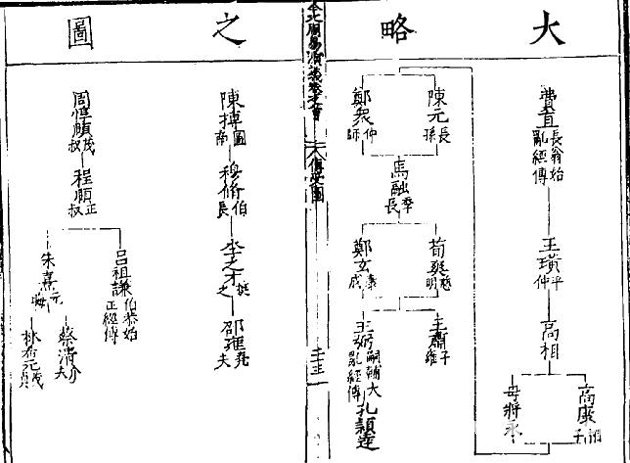 大略之圖
費直長翁始亂經傳
王璜平仲
高相
高康相子
毋將永
陳元長孫
鄭衆仲師
馬融季長
荀爽慈明
鄭玄康成
王肅子雍
王弼嗣輔大亂經傳
孔穎達
周易
卷之首
圖
二十三
陳摶圖南
穆脩伯長
李之才挺之
邵雍堯夫
周惇頤茂叔
程頤正叔
呂祖謙伯恭始正經傳
朱熹元晦
蔡清介夫
林希元茂貞